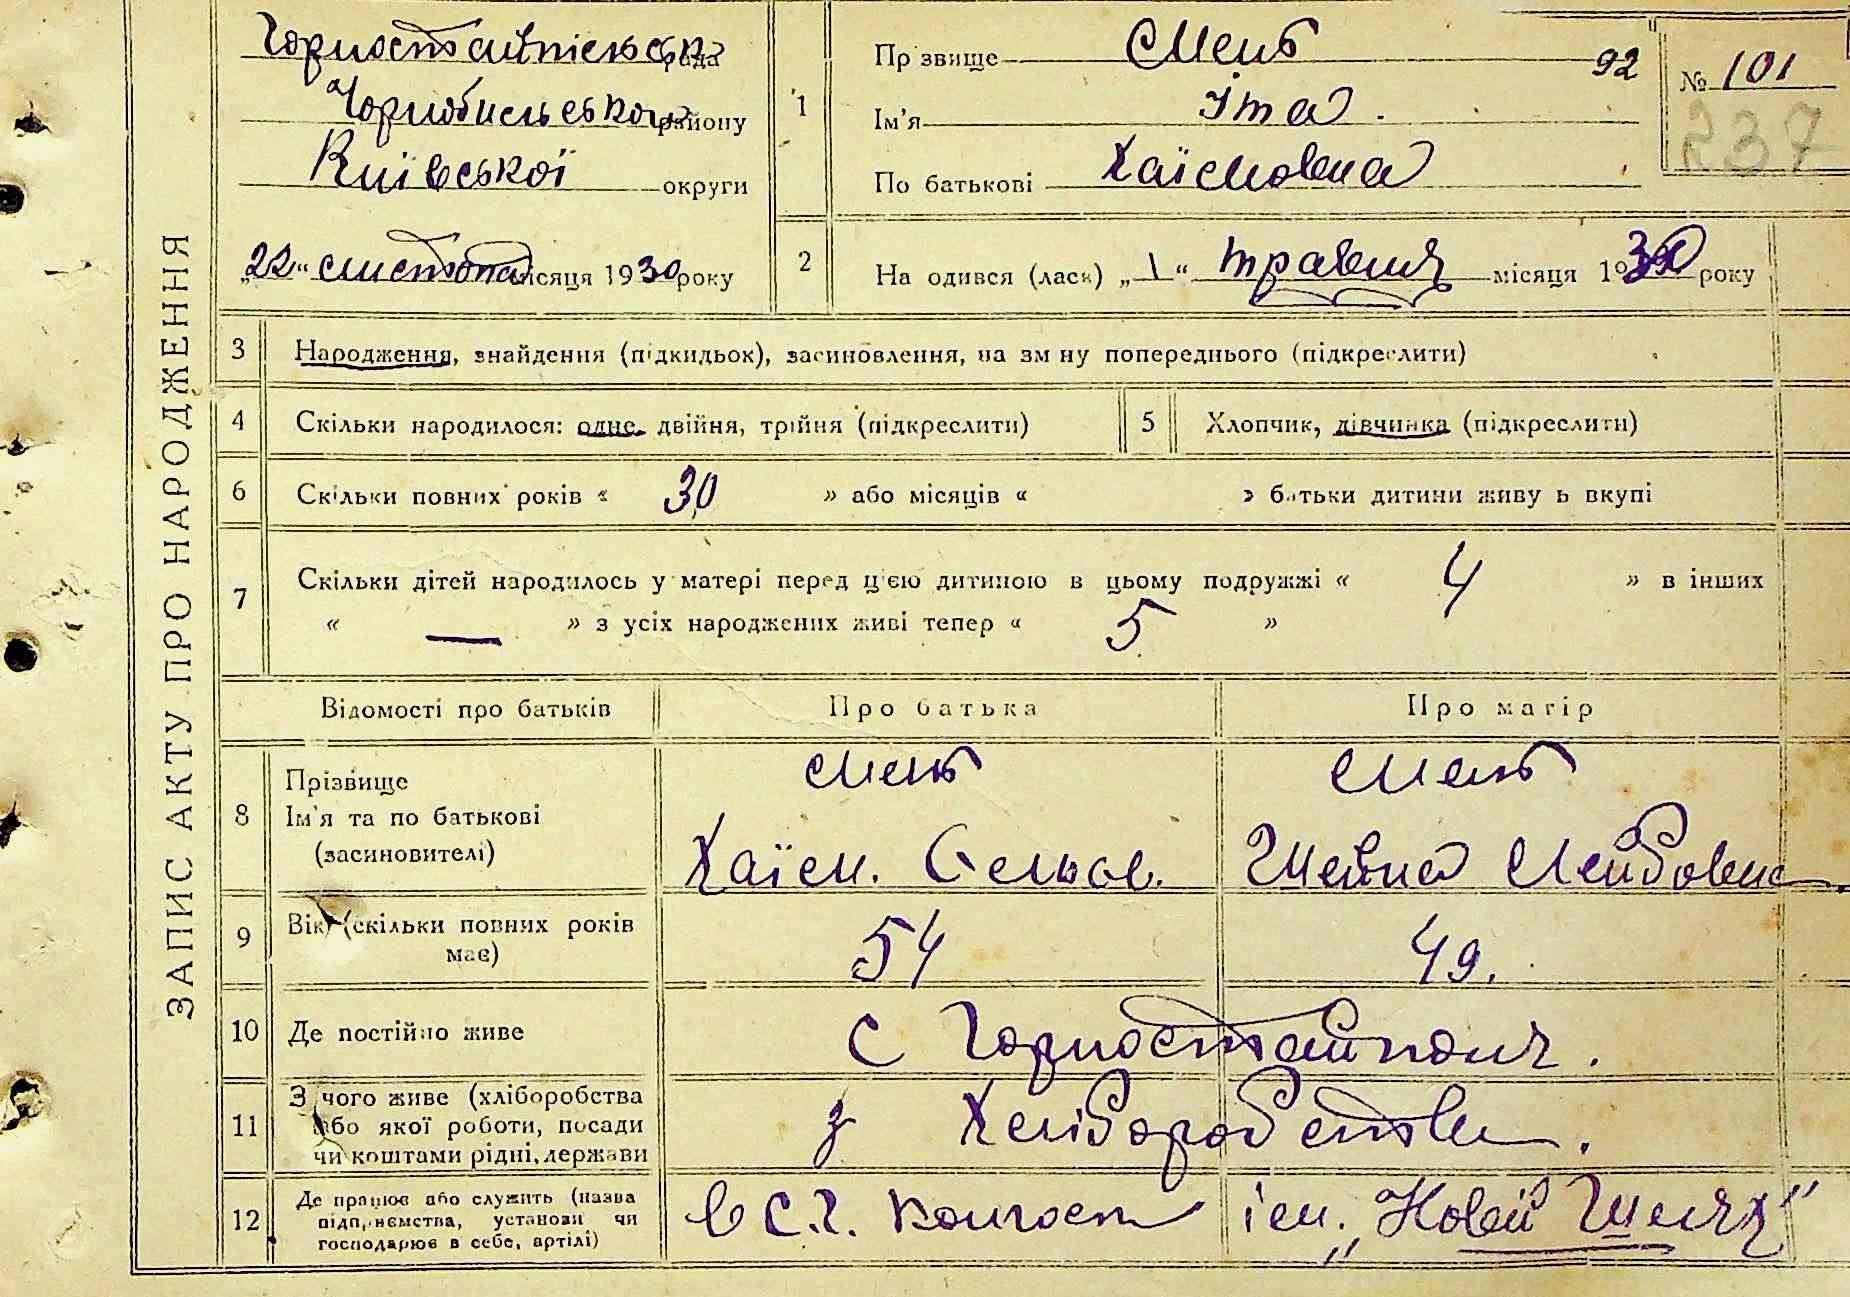 ЗАПИС АКТУ ПРО НАРОДЖЕННЯ
Горностайпільська рада
Чорнобильського району
Київської округи
„22“ листопа місяця 1930 року
1
Прізвище Мень
Ім'я Іта.
По батькові Хаїмовна
92
№ 101
237
2
На одився (лась) „1“ травня місяця 1930 року
3 Народження, знайдення (підкидьок), засиновлення, на зм ну попереднього (підкреслити)
4 Скільки народилося: одне, двійня, трійня (підкреслити)
5 Хлопчик, дівчинка (підкреслити)
6 Скільки повних років « 30 » або місяців « » батьки дитини живу ь вкупі
7 Скільки дітей народилось у матері перед цією дитиною в цьому подружжі « 4 » в інших
« — » з усіх народжених живі тепер « 5 »
Відомості про батьків Про батька Про матір
8 Прізвище Мень Мень
Ім'я та по батькові
(засиновителі) Хаїм. Шейна Лейбовна
9 Вік (скільки повних років має) 54 49.
10 Де постійно живе С Горностайполя.
11 З чого живе (хліборобства
або якої роботи, посади
чи коштами рідні, держави з Хліборобства.
12 Де працює або служить (назва
підприємства, установи чи
господарює в себе, артілі) в с.г. колгосп ім. „Новий Шлях“